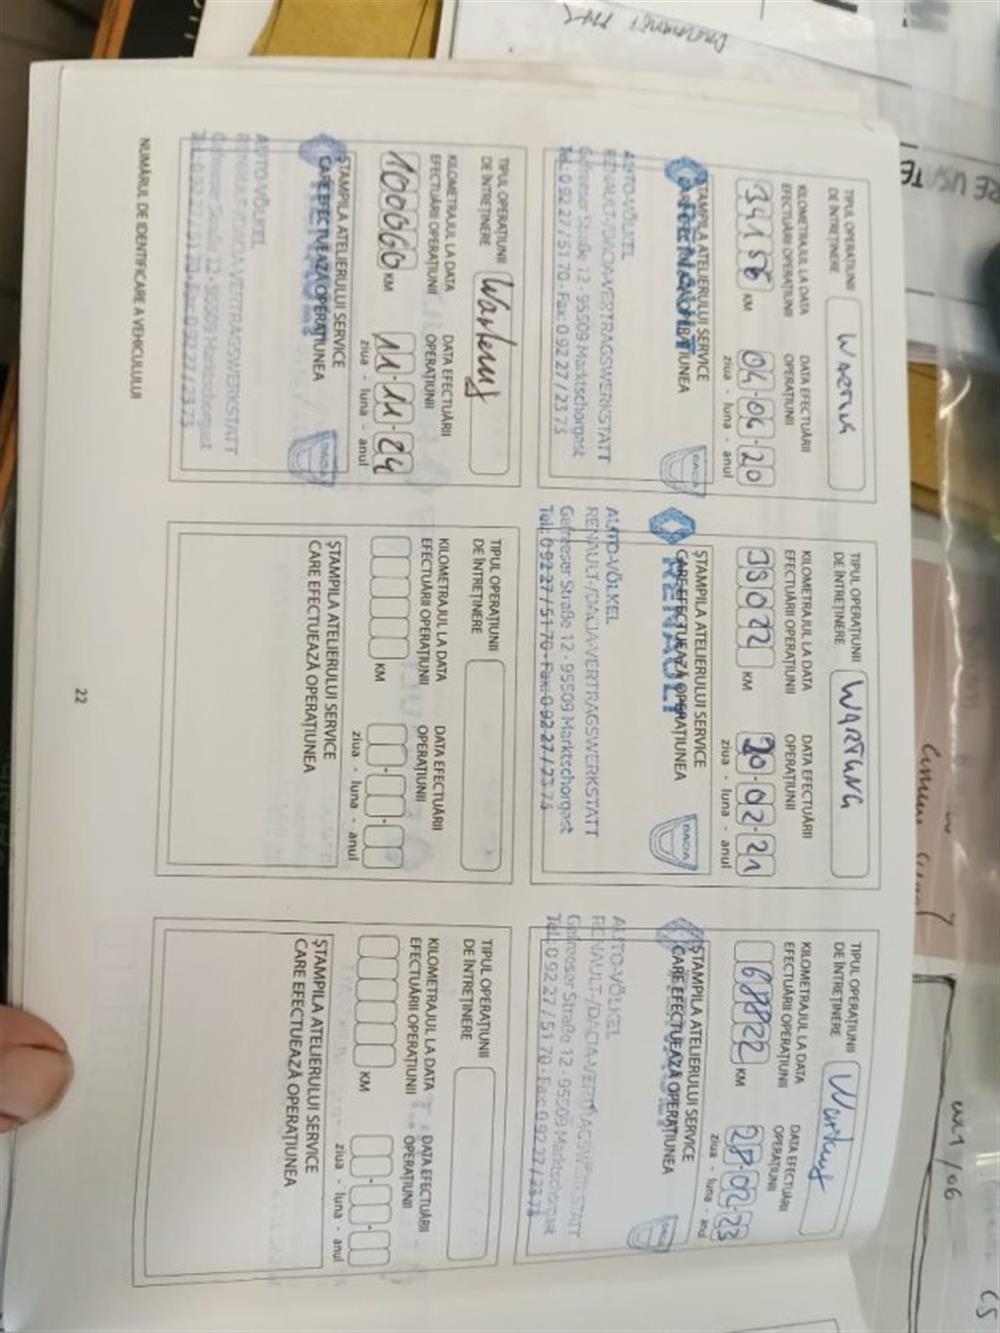 TIPUL OPERAȚIUNII
DE ÎNTREȚINERE
WARTUNG
KILOMETRAJUL LA DATA
EFECTUĂRII OPERAȚIUNII
34156 KM
DATA EFECTUĂRII
OPERAȚIUNII
04-04-20
ziua - luna - anul
ȘTAMPILA ATELIERULUI SERVICE
CARE EFECTUEAZĂ OPERAȚIUNEA
RENAULT
DACIA
AUTO-VÖLKEL
RENAULT-/DACIA-VERTRAGSWERKSTATT
Gefreeser Straße 12 · 95509 Marktschorgast
Tel.: 0 92 27 / 51 70 · Fax: 0 92 27 / 23 73
TIPUL OPERAȚIUNII
DE ÎNTREȚINERE
WARTUNG
KILOMETRAJUL LA DATA
EFECTUĂRII OPERAȚIUNII
38022 KM
DATA EFECTUĂRII
OPERAȚIUNII
20-02-21
ziua - luna - anul
ȘTAMPILA ATELIERULUI SERVICE
CARE EFECTUEAZĂ OPERAȚIUNEA
RENAULT
DACIA
AUTO-VÖLKEL
RENAULT-/DACIA-VERTRAGSWERKSTATT
Gefreeser Straße 12 · 95509 Marktschorgast
Tel.: 0 92 27 / 51 70 · Fax: 0 92 27 / 23 73
TIPUL OPERAȚIUNII
DE ÎNTREȚINERE
Wartung
KILOMETRAJUL LA DATA
EFECTUĂRII OPERAȚIUNII
68822 KM
DATA EFECTUĂRII
OPERAȚIUNII
28-02-23
ziua - luna - anul
ȘTAMPILA ATELIERULUI SERVICE
CARE EFECTUEAZĂ OPERAȚIUNEA
AUTO-VÖLKEL
RENAULT-/DACIA-VERTRAGSWERKSTATT
Gefreeser Straße 12 · 95509 Marktschorgast
Tel.: 0 92 27 / 51 70 · Fax: 0 92 27 / 23 73
TIPUL OPERAȚIUNII
DE ÎNTREȚINERE
Wartung
KILOMETRAJUL LA DATA
EFECTUĂRII OPERAȚIUNII
100060 KM
DATA EFECTUĂRII
OPERAȚIUNII
11-11-24
ziua - luna - anul
ȘTAMPILA ATELIERULUI SERVICE
CARE EFECTUEAZĂ OPERAȚIUNEA
RENAULT
DACIA
AUTO-VÖLKEL
RENAULT-/DACIA-VERTRAGSWERKSTATT
Gefreeser Straße 12 · 95509 Marktschorgast
Tel.: 0 92 27 / 51 70 · Fax: 0 92 27 / 23 73
TIPUL OPERAȚIUNII
DE ÎNTREȚINERE
KILOMETRAJUL LA DATA
EFECTUĂRII OPERAȚIUNII
KM
DATA EFECTUĂRII
OPERAȚIUNII
ziua - luna - anul
ȘTAMPILA ATELIERULUI SERVICE
CARE EFECTUEAZĂ OPERAȚIUNEA
TIPUL OPERAȚIUNII
DE ÎNTREȚINERE
KILOMETRAJUL LA DATA
EFECTUĂRII OPERAȚIUNII
KM
DATA EFECTUĂRII
OPERAȚIUNII
ziua - luna - anul
ȘTAMPILA ATELIERULUI SERVICE
CARE EFECTUEAZĂ OPERAȚIUNEA
NUMĂRUL DE IDENTIFICARE A VEHICULULUI
22